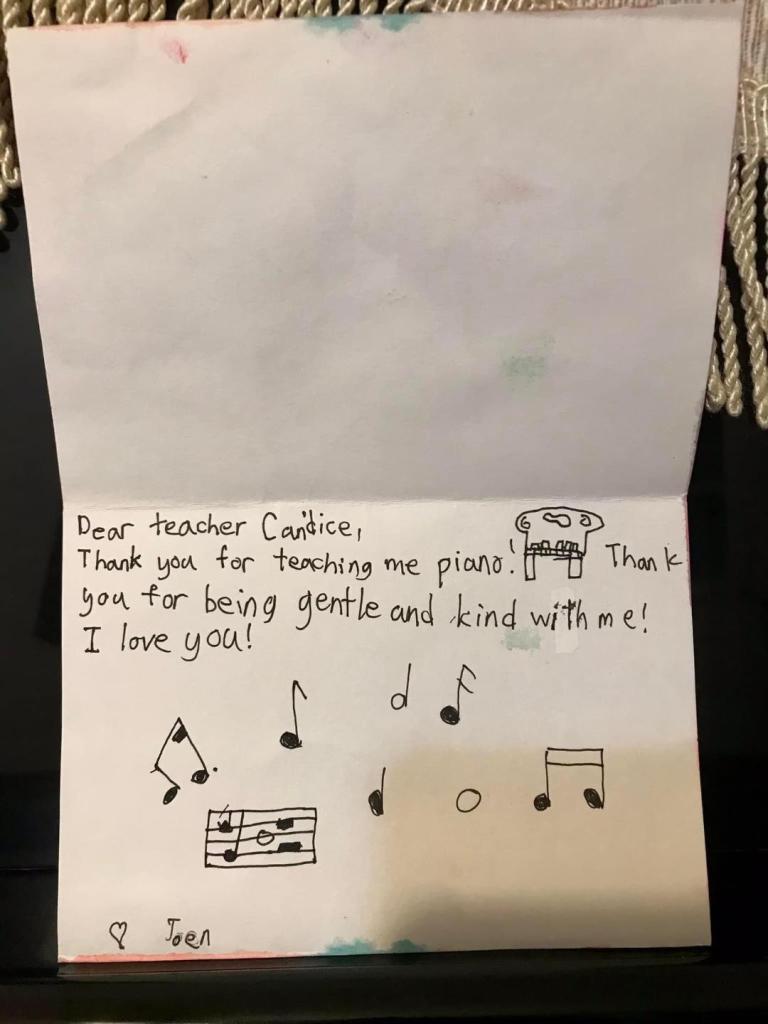 Dear teacher Candice,
Thank you for teaching me piano! Thank
you for being gentle and kind with me!
I love you!
♡ Joen